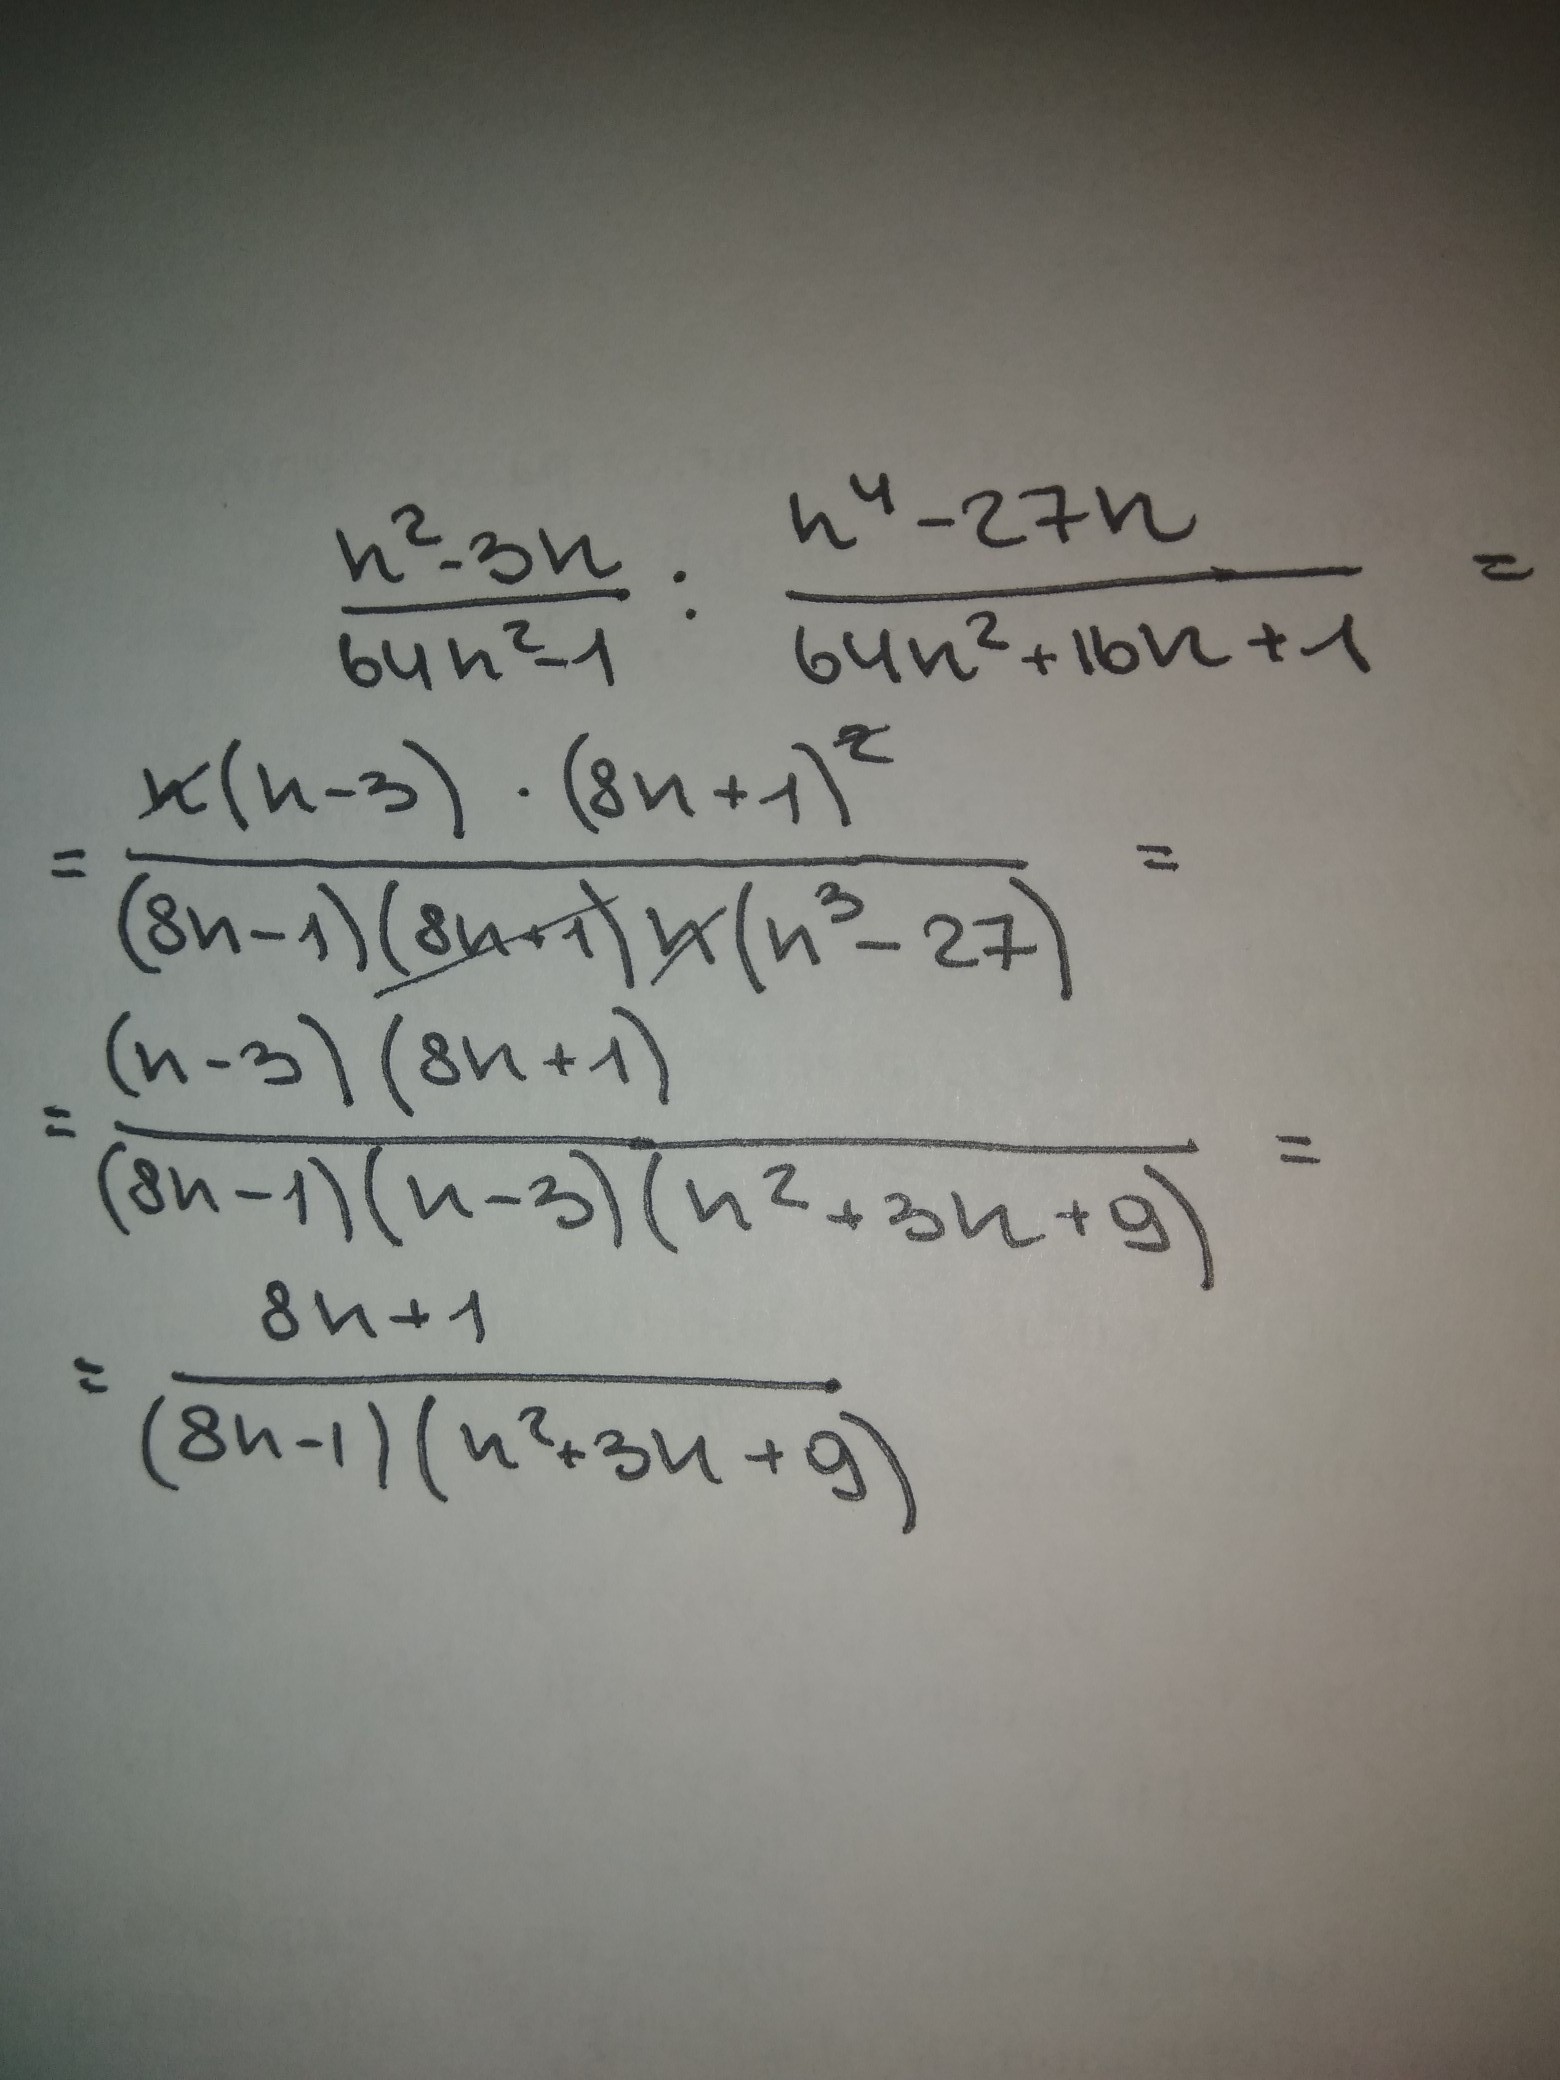 n² - 3n / 64n² - 1 : n⁴ - 27n / 64n² + 16n + 1 =
= n(n - 3) · (8n + 1)² / (8n - 1)(8n + 1)n(n³ - 27) =
= (n - 3)(8n + 1) / (8n - 1)(n - 3)(n² + 3n + 9) =
= 8n + 1 / (8n - 1)(n² + 3n + 9)